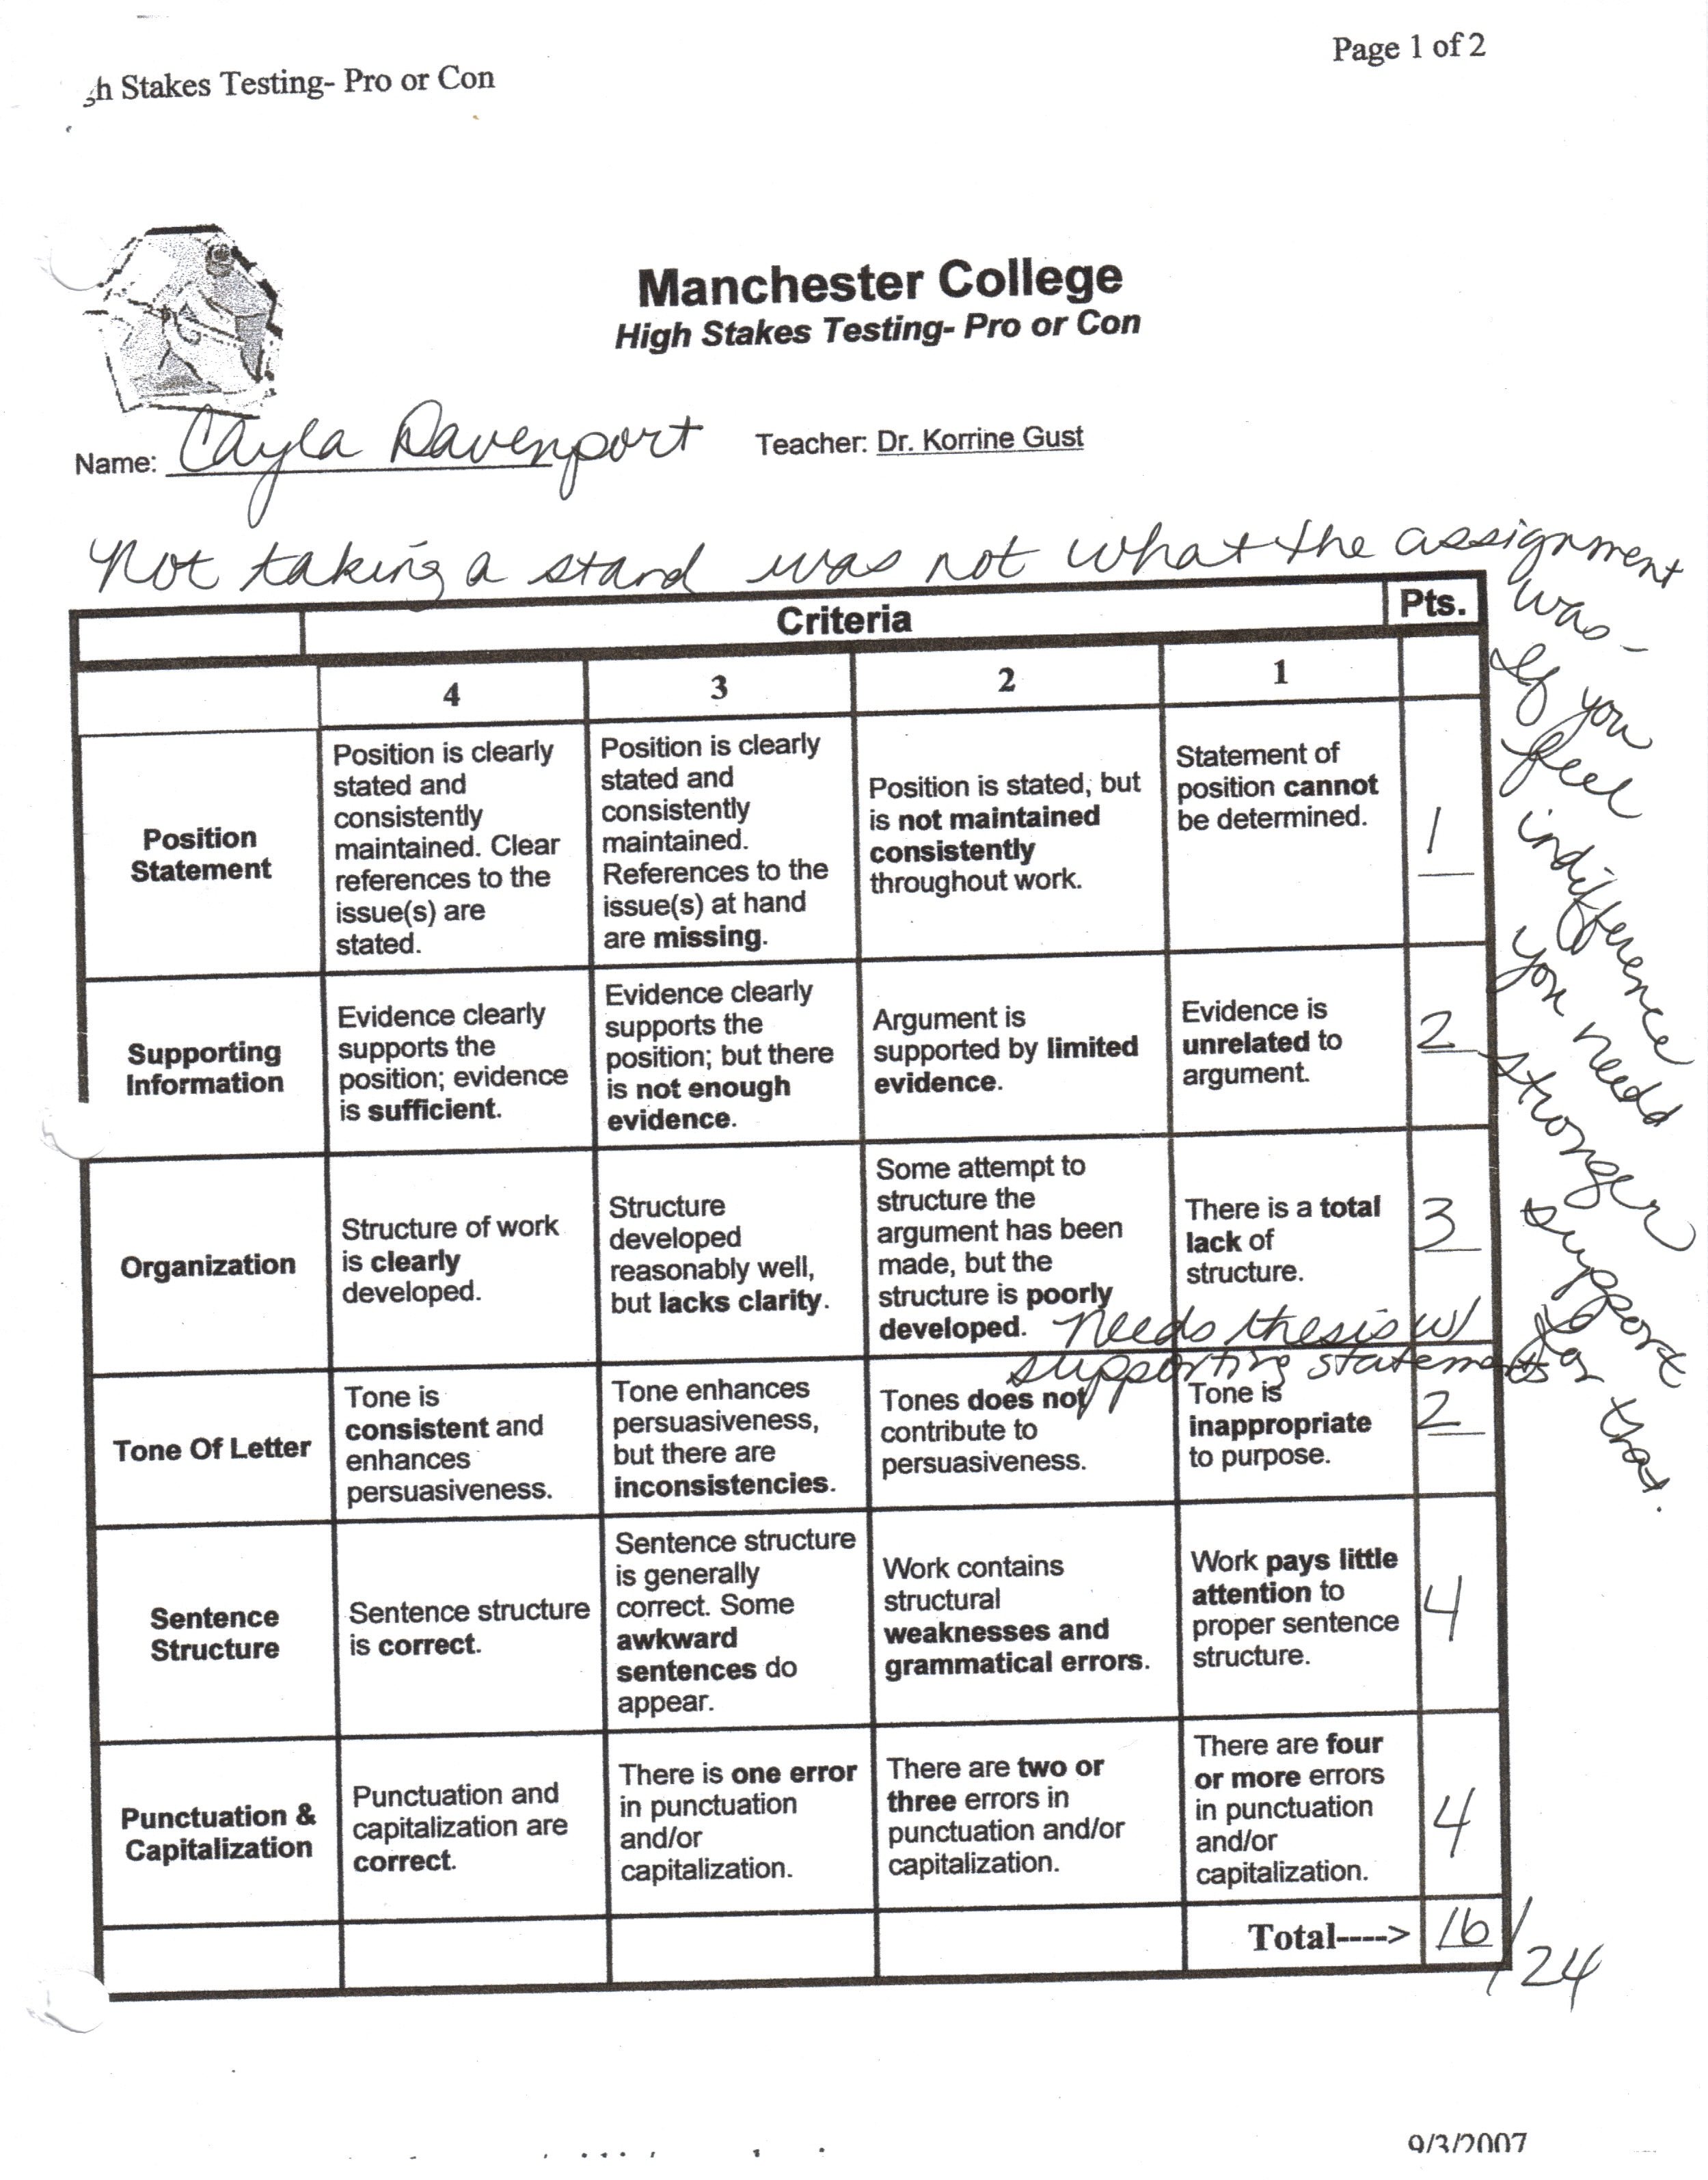 Page 1 of 2
gh Stakes Testing- Pro or Con
Manchester College
High Stakes Testing- Pro or Con
Name: Cayla Davenport Teacher: Dr. Korrine Gust
Not taking a stand was not what the assignment
was -
If you
feel
indifference
you needd
stronger
support
for that.
Criteria Pts.
4 3 2 1
Position
Statement
Position is clearly
stated and
consistently
maintained. Clear
references to the
issue(s) are
stated.
Position is clearly
stated and
consistently
maintained.
References to the
issue(s) at hand
are missing.
Position is stated, but
is not maintained
consistently
throughout work.
Statement of
position cannot
be determined.
1
Supporting
Information
Evidence clearly
supports the
position; evidence
is sufficient.
Evidence clearly
supports the
position; but there
is not enough
evidence.
Argument is
supported by limited
evidence.
Evidence is
unrelated to
argument.
2
Organization
Structure of work
is clearly
developed.
Structure
developed
reasonably well,
but lacks clarity.
Some attempt to
structure the
argument has been
made, but the
structure is poorly
developed.
There is a total
lack of
structure.
3
Needs thesis w/
supporting statements
Tone Of Letter
Tone is
consistent and
enhances
persuasiveness.
Tone enhances
persuasiveness,
but there are
inconsistencies.
Tones does not
contribute to
persuasiveness.
Tone is
inappropriate
to purpose.
2
Sentence
Structure
Sentence structure
is correct.
Sentence structure
is generally
correct. Some
awkward
sentences do
appear.
Work contains
structural
weaknesses and
grammatical errors.
Work pays little
attention to
proper sentence
structure.
4
Punctuation &
Capitalization
Punctuation and
capitalization are
correct.
There is one error
in punctuation
and/or
capitalization.
There are two or
three errors in
punctuation and/or
capitalization.
There are four
or more errors
in punctuation
and/or
capitalization.
4
Total----> 16/24
9/3/2007